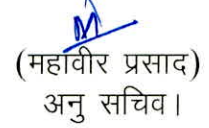 (महावीर प्रसाद)
अनु सचिव।